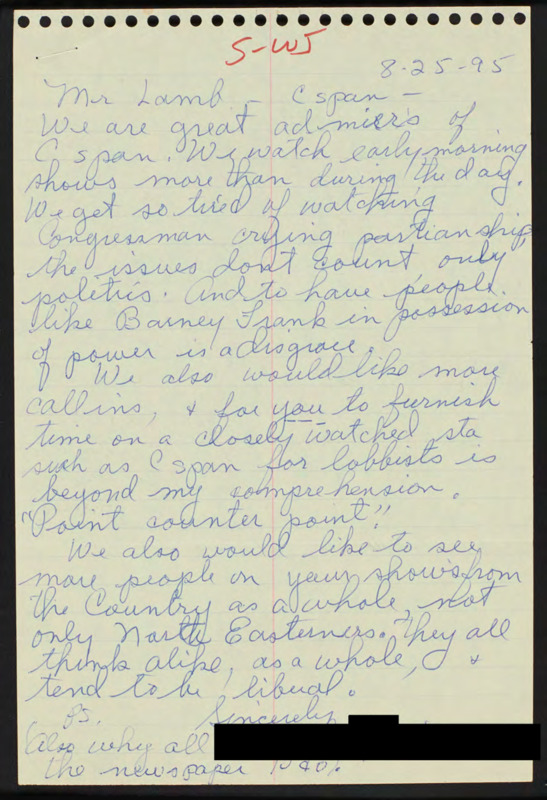 S-WJ
8-25-95
Mr Lamb - C span -
We are great admiers of
C span. We watch early morning
shows more than during the day.
We get so tired of watching
Congressman crying partianship
the issues dont count only
politics. And to have people
like Barney Frank in possession
of power is a disgrace.
We also would like more
call ins, & for you to furnish
time on a closely watched sta
such as C span for lobbists is
beyond my comprehension.
"Point counter point"!
We also would like to see
more people on your shows from
the Country as a whole, not
only North Easterners. They all
think alike, as a whole, &
tend to be liberal.
Ps. Sincerely
Also why all
the newspaper